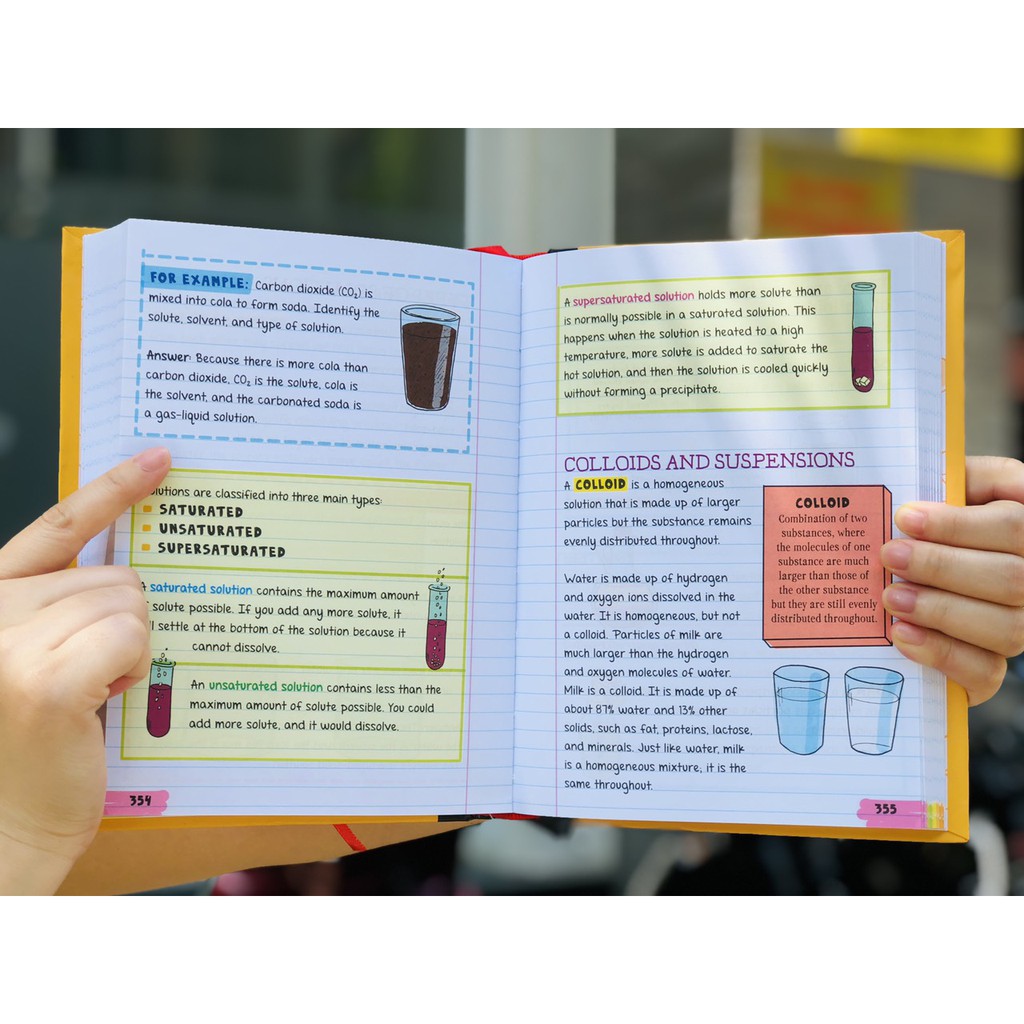 FOR EXAMPLE: Carbon dioxide (CO₂) is
mixed into cola to form soda. Identify the
solute, solvent, and type of solution.
Answer: Because there is more cola than
carbon dioxide, CO₂ is the solute, cola is
the solvent, and the carbonated soda is
a gas-liquid solution.
lutions are classified into three main types:
SATURATED
UNSATURATED
SUPERSATURATED
A saturated solution contains the maximum amount
f solute possible. If you add any more solute, it
ll settle at the bottom of the solution because it
cannot dissolve.
An unsaturated solution contains less than the
maximum amount of solute possible. You could
add more solute, and it would dissolve.
354
A supersaturated solution holds more solute than
is normally possible in a saturated solution. This
happens when the solution is heated to a high
temperature, more solute is added to saturate the
hot solution, and then the solution is cooled quickly
without forming a precipitate.
COLLOIDS AND SUSPENSIONS
A COLLOID is a homogeneous
solution that is made up of larger
particles but the substance remains
evenly distributed throughout.
Water is made up of hydrogen
and oxygen ions dissolved in the
water. It is homogeneous, but not
a colloid. Particles of milk are
much larger than the hydrogen
and oxygen molecules of water.
Milk is a colloid. It is made up of
about 87% water and 13% other
solids, such as fat, proteins, lactose,
and minerals. Just like water, milk
is a homogeneous mixture; it is the
same throughout.
COLLOID
Combination of two
substances, where
the molecules of one
substance are much
larger than those of
the other substance
but they are still evenly
distributed throughout.
355